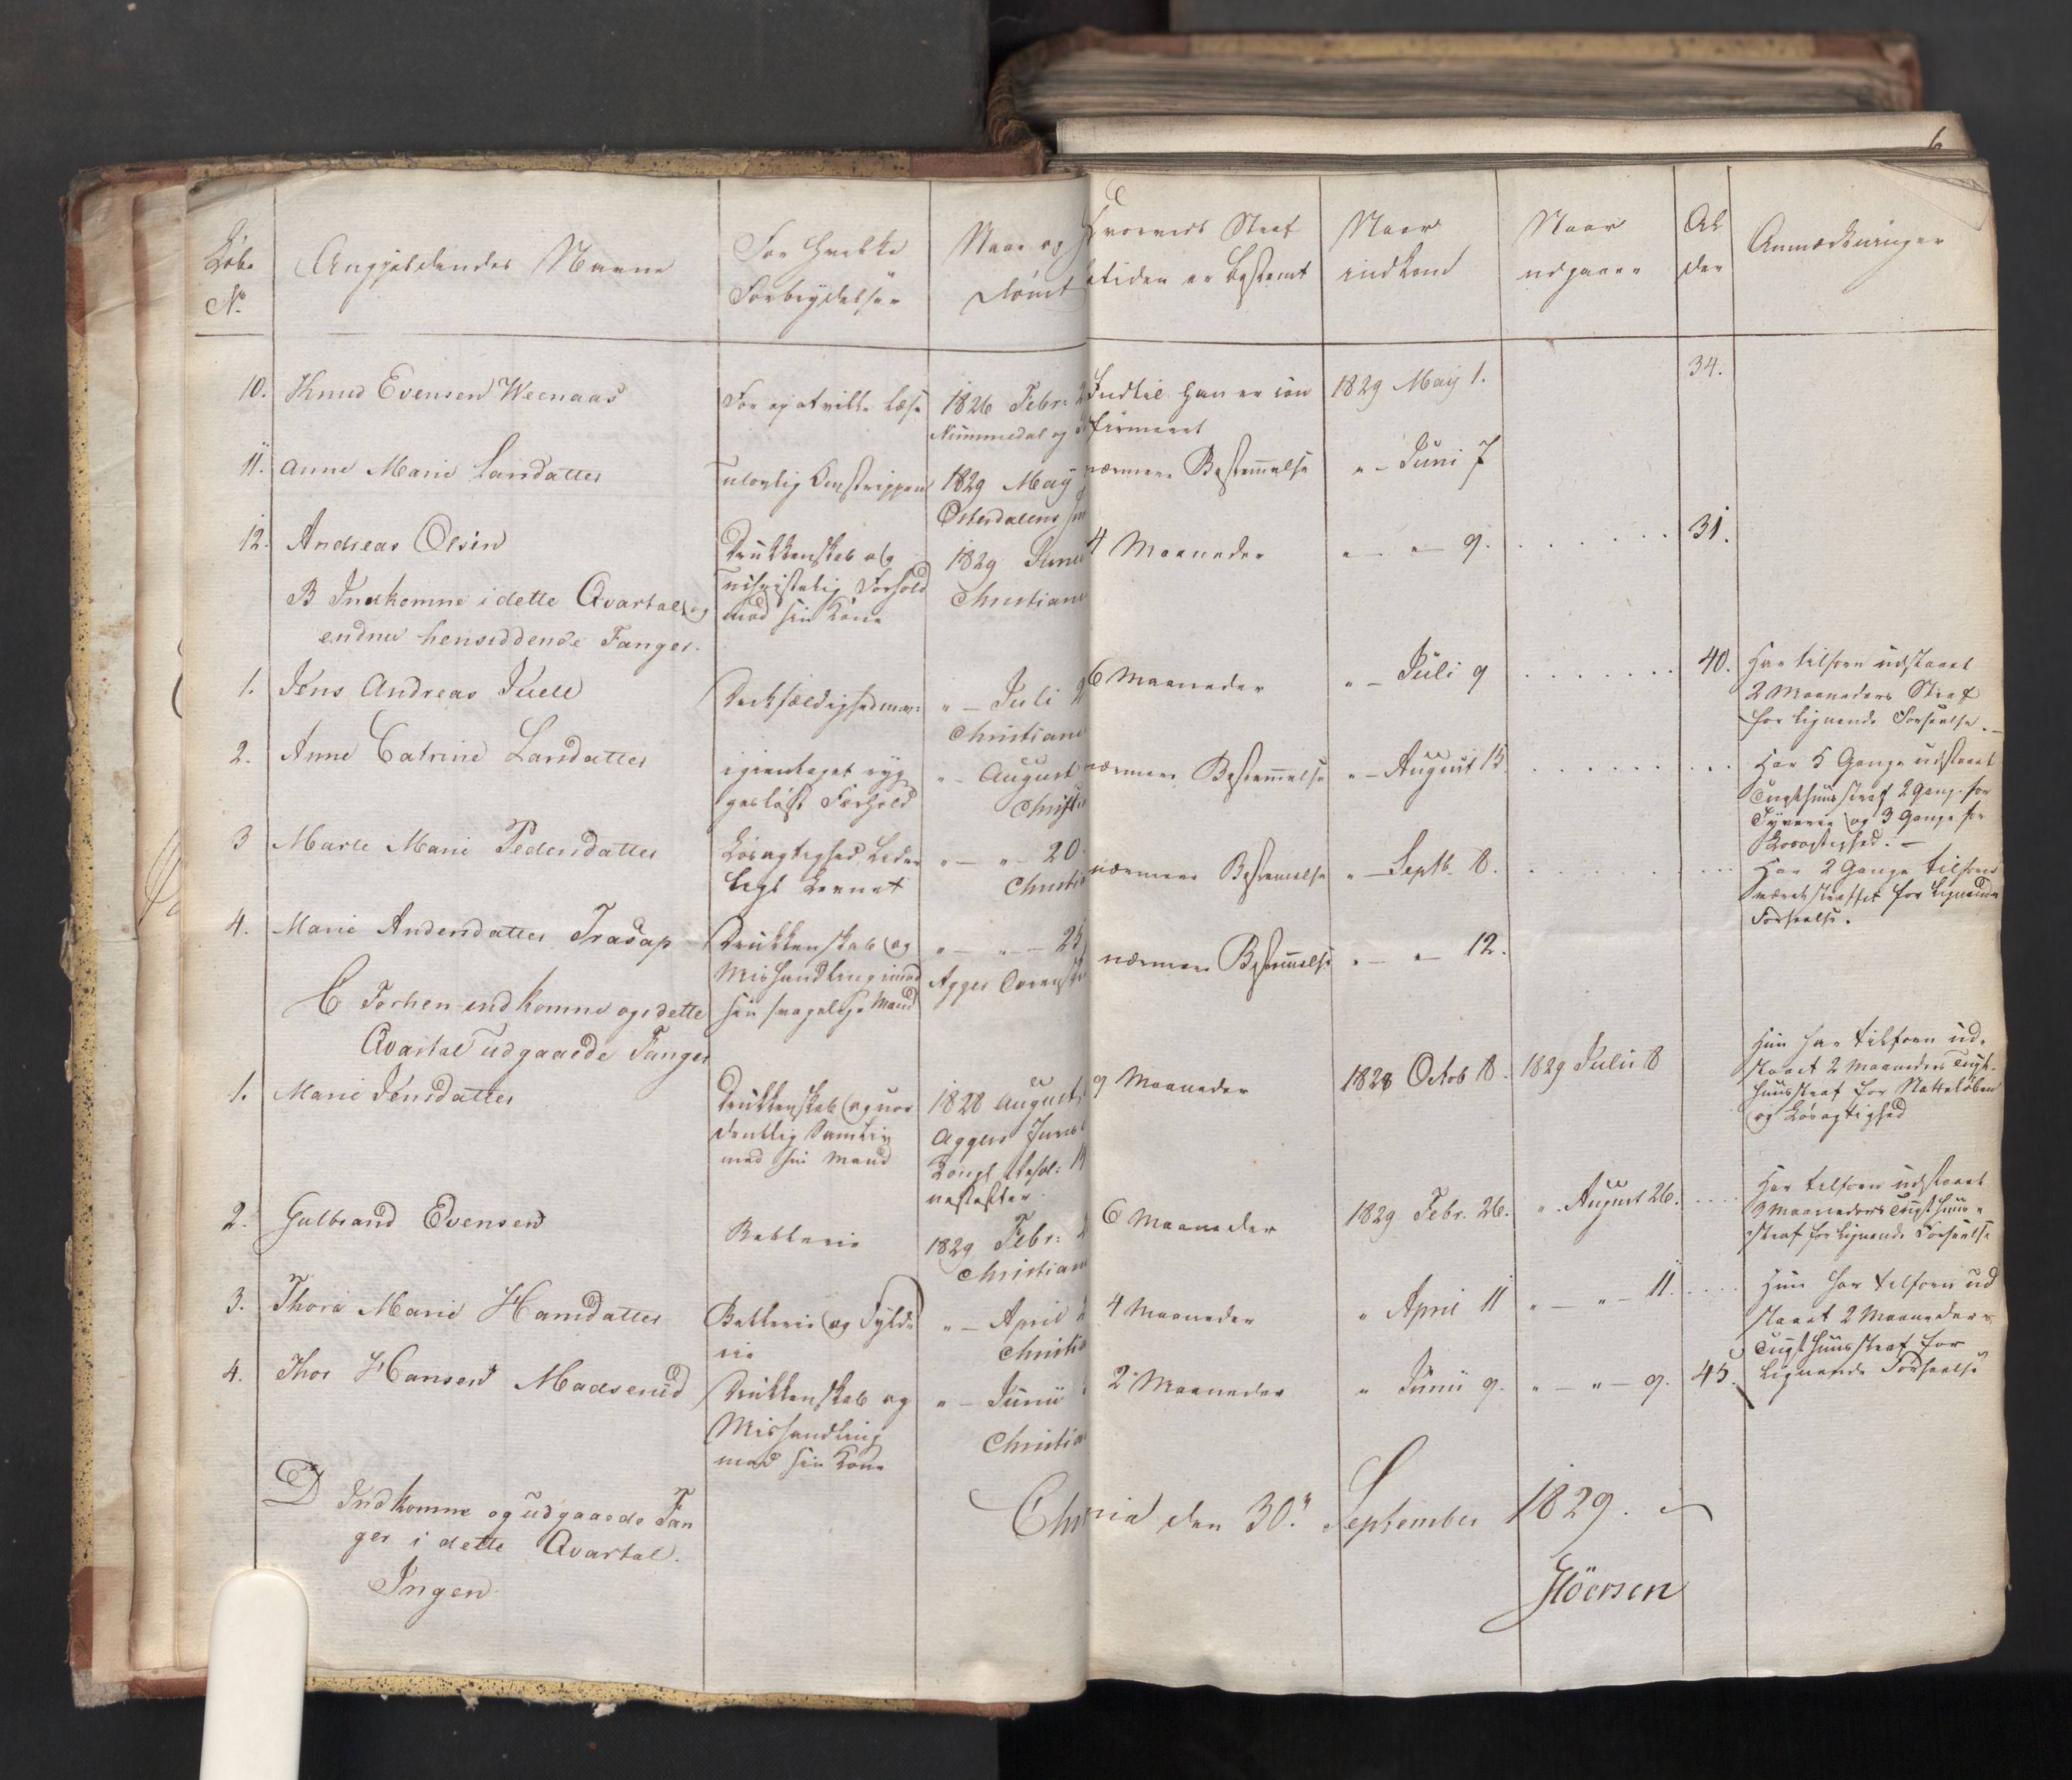 6
Løbe
No.
Angjeldendes Navne
For hvilke
Forbrydelser
Naar og
dömt
Hvorvidt Straf
tiden er bestemt
Naar
indkom̄
Naar
udgaaer
Al
der
Anmærkninger
10. Knud Evensen Weenaas
For ej at ville læse
1826 Febr: 2
Nummedal og
Indtil han er con
firmeret
1829 May 1.
34.
11. Anne Marie Larsdatter
ulovlig Omstrippen
1829 May
Österdalens
nærmere Bestem̄else
" - Juni 7
12. Andreas Olsen
Drukkenskab og
uchristelig Forhold
mod sin Kone
1829 Junii
Christian
4 Maaneder
" - " - 9.
31.
B Indkomne i dette Qvartal og
endnu hensiddende Fanger.
1. Jens Andreas Juell
" - Juli 2
Christian
6 Maaneder
" - Juli 9
40.
Har tilforn udstaaet
2 Maaneders Straf
for lignende Forseelse. -
2. Anne Catrine Larsdatter
igientaget ryg
gesløst Forhold
" - August
Christi
nærmere Bestem̄else
" - August 15.
Har 5 Gange udstaaet
Tugthuus straf 2 Gang for
Tyverie og 3 Gange for
Løsagtighed. -
3 Marte Marie Pedersdatter
Løsagtighed, Lider
ligt Levnet
" - " - 20.
Christi
nærmere Bestemmelse
" - Septb. 8.
Har 2 Gange tilforn
været straffet for lignende
Forseelse.
4. Marie Andersdatter Trasop
Drukkenskab og
Mishandling imod
sin svagelige Mand
" - " - 25
Agger Sorensk
nærmere Bestem̄else
" - " - 12.
C Forhen indkomne og i dette
Qvartal udgaaede Fanger
1. Marie Jensdatter
Drukkenskab og uor
dentlig Samliv
med sin Mand
1828 August
Aggers
Kongl. Resol: 14
næstefter.
9 Maaneder
1828 Octob 8.
1829 Julii 8
Hun har tilforn ud-
staaet 2 Maaneders Tugt-
huusstraf for Natteløben
og Løsagtighed
2. Gulbrand Evensen
Betlerie
1829 Febr: 2
Christian
6 Maaneder
1829 Febr. 26.
" - August 26.
Har tilforn udstaaet
3 Maaneders Tugthuus-
straf for lignende Forseelse
3. Thora Marie Hansdatter
Betlerie og Fylde
rie
" - April 2
Christia
4 Maaneder
" April 11
" - " - 11.
Hun har tilforn ud
staaet 2 Maaneders
Tugthuusstraf for
lignende Forseelse
4. Thor Hansen Madserud
Drukkenskab og
Mishandling
mod sin Kone
" - Junii
Christia
2 Maaneder
" Junii 9.
" - " - 9.
45.
D Indkomne og udgaaede Fan
ger i dette Qvartal.
Ingen.
Chrnia den 30te September 1829.
Höersen